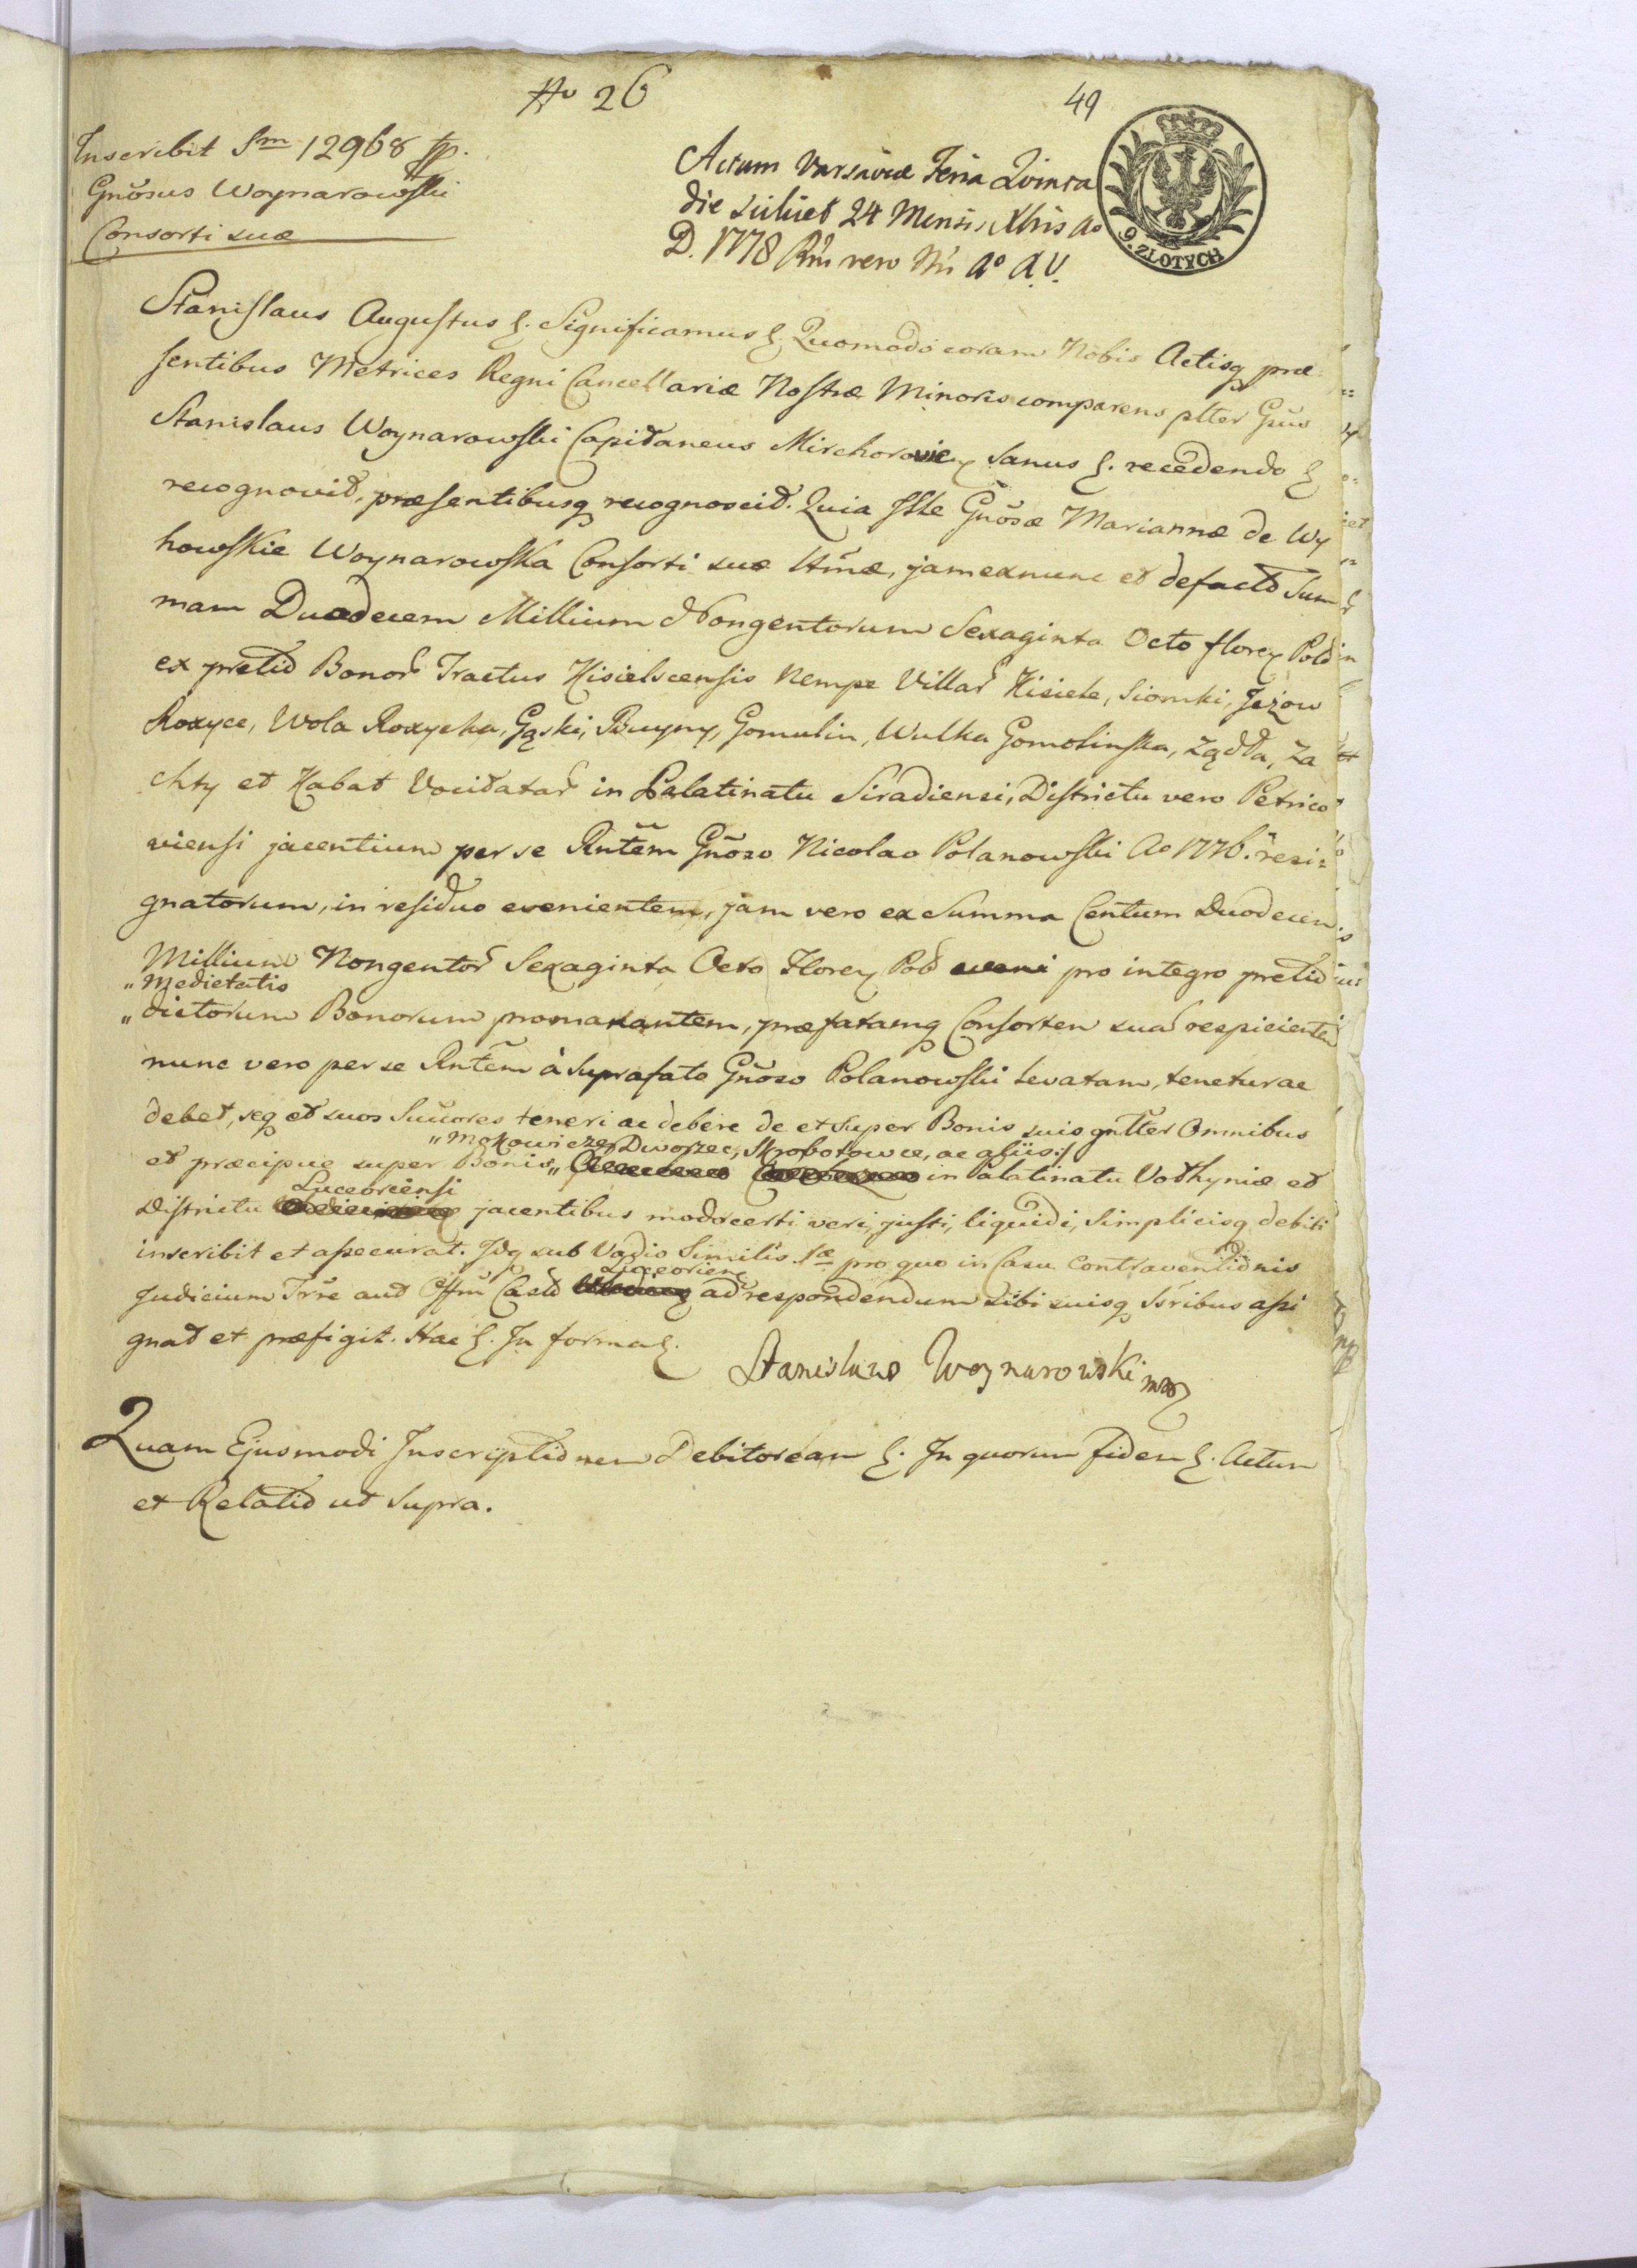 No 26
49
Inscribit Sm 12968 fp.
Gnõsus Woynarowski
Consorti suæ
Actum Varsaviæ Feria Quinta
die scilicet 24 Mensis Xbris Ao
D. 1778
9. ZŁOTYCH
Stanislaus Augustus &. Significamus &. Quomodo coram Nobis Actisq præ
sentibus Metrices Regni Cancellariæ Nostræ Minoris comparens plter Gnũs
Stanislaus Woynarowski Capitaneus Mirchorowicz sanus &. recedendo &
recognovit, præsentibusq recognoscit. Quia Ille Gnõsæ Mariannæ de Wy
howskie Woynarowska Consorti suæ Ittmæ, jam exnunc et defacto Sum
mam Duodecem Millium Nongentorum Sexaginta Octo floren Pol
ex pretio Bonor Tractus Kisielscensis Nempe Villar Kisiele, Siomki, Jeżow
Roxyce, Wola Roxycka, Gąski, Buyny, Gomulin, Wulka Gomolinska, Żądła, Za
chty et Kabat Vocitatar in Palatinatu Siradiensi, Districtu vero Petrico
viensi jacentium per se Rntẽm Gnõso Nicolao Polanowski Ao 1776. resi
gnatorum, in residuo evenientem, jam vero ex Summa Centum Duodecem
Millium Nongentor Sexaginta Octo Floren Pol pro integro pretio
„Medietatis
„dictorum Bonorum promanantem, præfatamq Consortem sua respicientem
nunc vero per se Rntẽm à Suprafato Gnõso Polanowski levatam, tenetur ac
debet, seq et suos Succores teneri ac debere de et super Bonis suis gnlter Omnibus
„Mokowicze, Dworzec, Skrobotowce, ac aliis
et præcipue super Bonis „ in Palatinatu Volhyniæ et
Luceoriensi
Districtu jacentibus modo certi veri, justi, liquidi, Simplicisq debiti
inscribit et assecurat. Idq sub Vadio Similis Sæ pro quo in Casu Contraventionis
Luceorien
Judicium Trre aut Offm Castr ad respondendum sibi suisq Ssribus assi
gnat et præfigit. Hac &. In forma &.
Stanislaus Woynarowski mp
Quam Ejusmodi Inscriptionem Debitoream &. In quorum fidem &. Actum
et Relatio ut Supra.